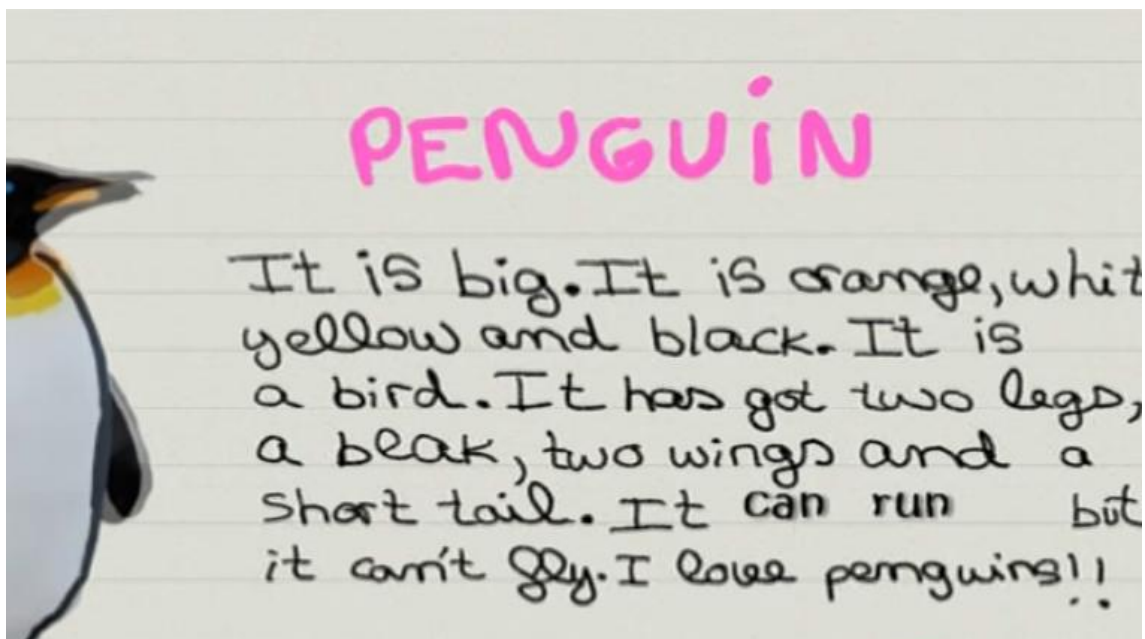 PENGUiN
It is big. It is orange, whit
yellow and black. It is
a bird. It has got two legs,
a beak, two wings and a
short tail. It can run but
it can't fly. I love penguins!!